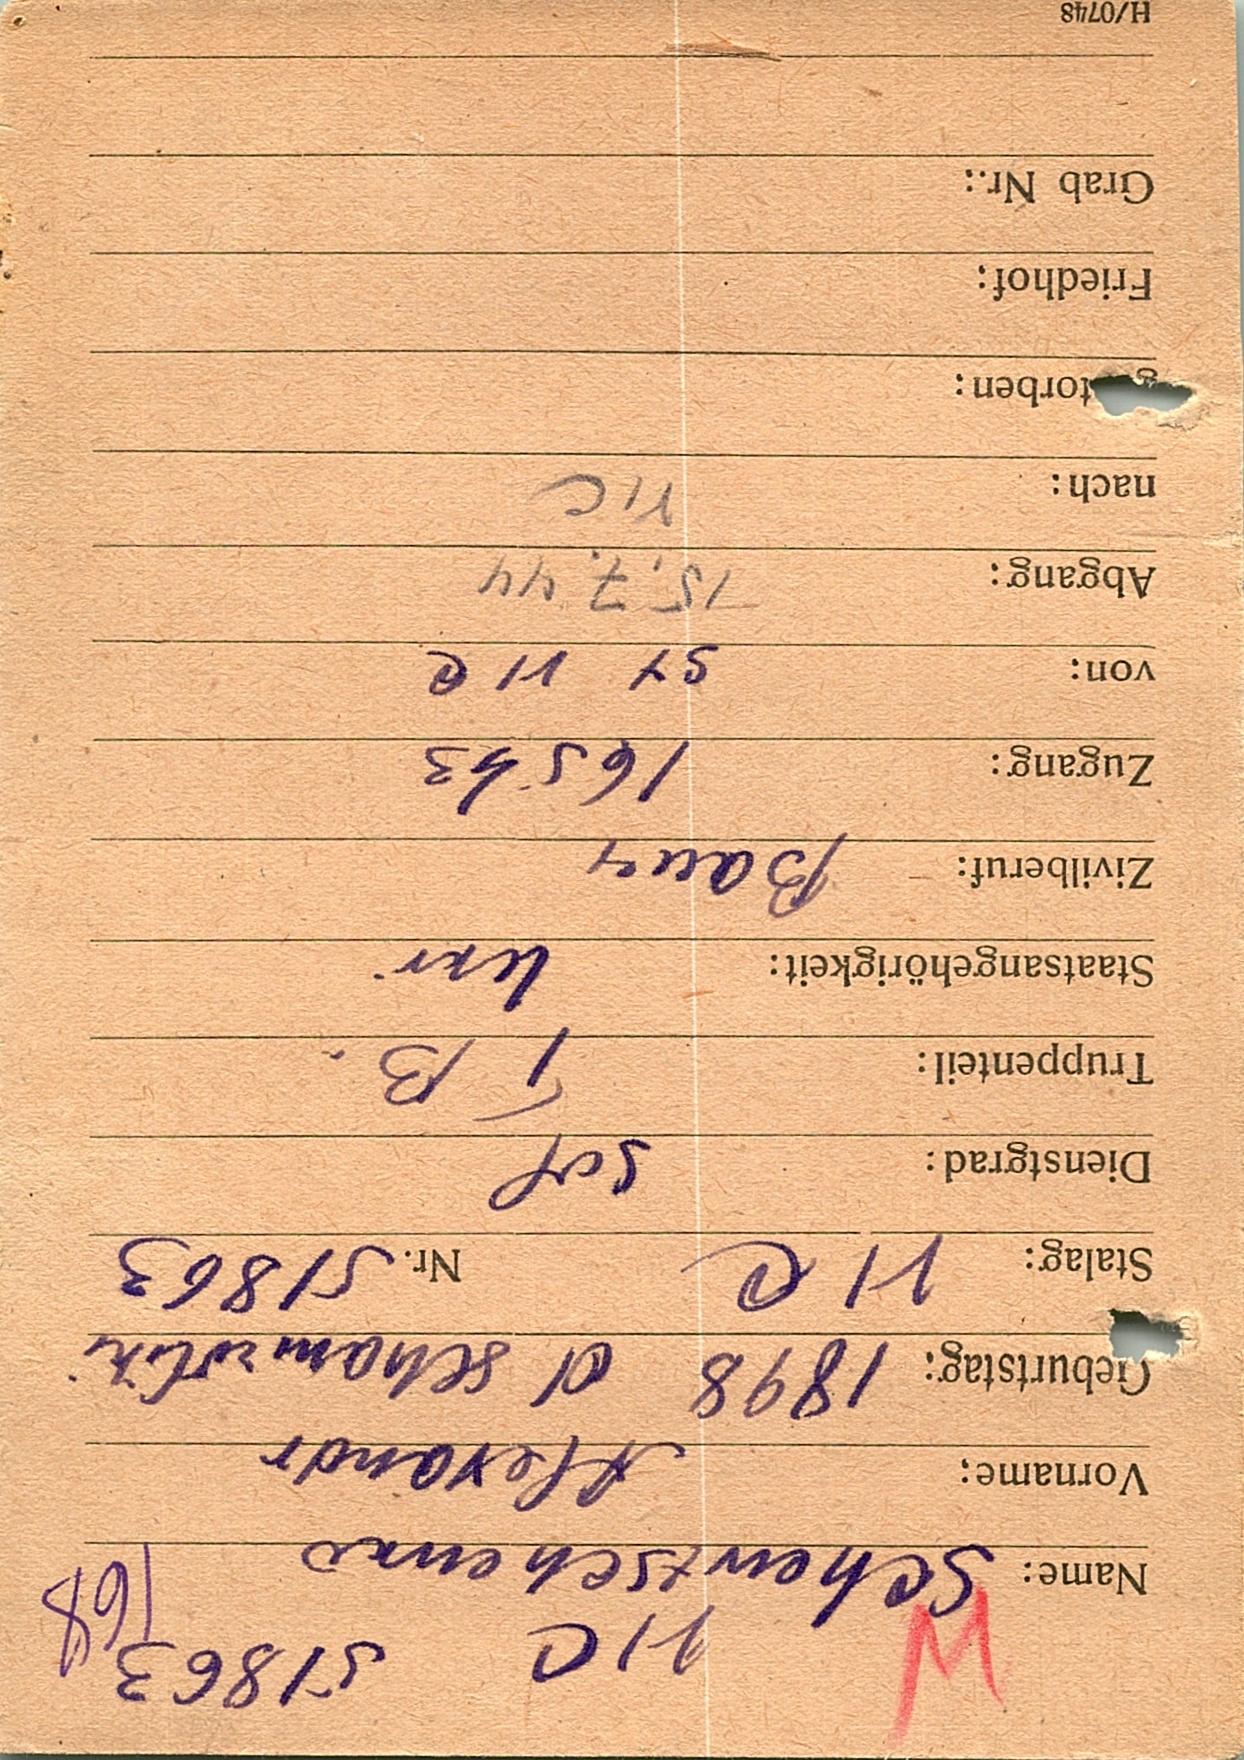 M VI C 51863
168
Name: Schewtschenko
Vorname: Alexandr
Geburtstag: 1898
Stalag: VI C Nr. 51863
Dienstgrad: Sol
Truppenteil: T B.
Staatsangehörigkeit: Ukr.
Zivilberuf: Bauer
Zugang: 16 5 43
von: St VI C
Abgang: 15.7.44
nach: VI C
gestorben:
Friedhof:
Grab Nr.:
H/0748